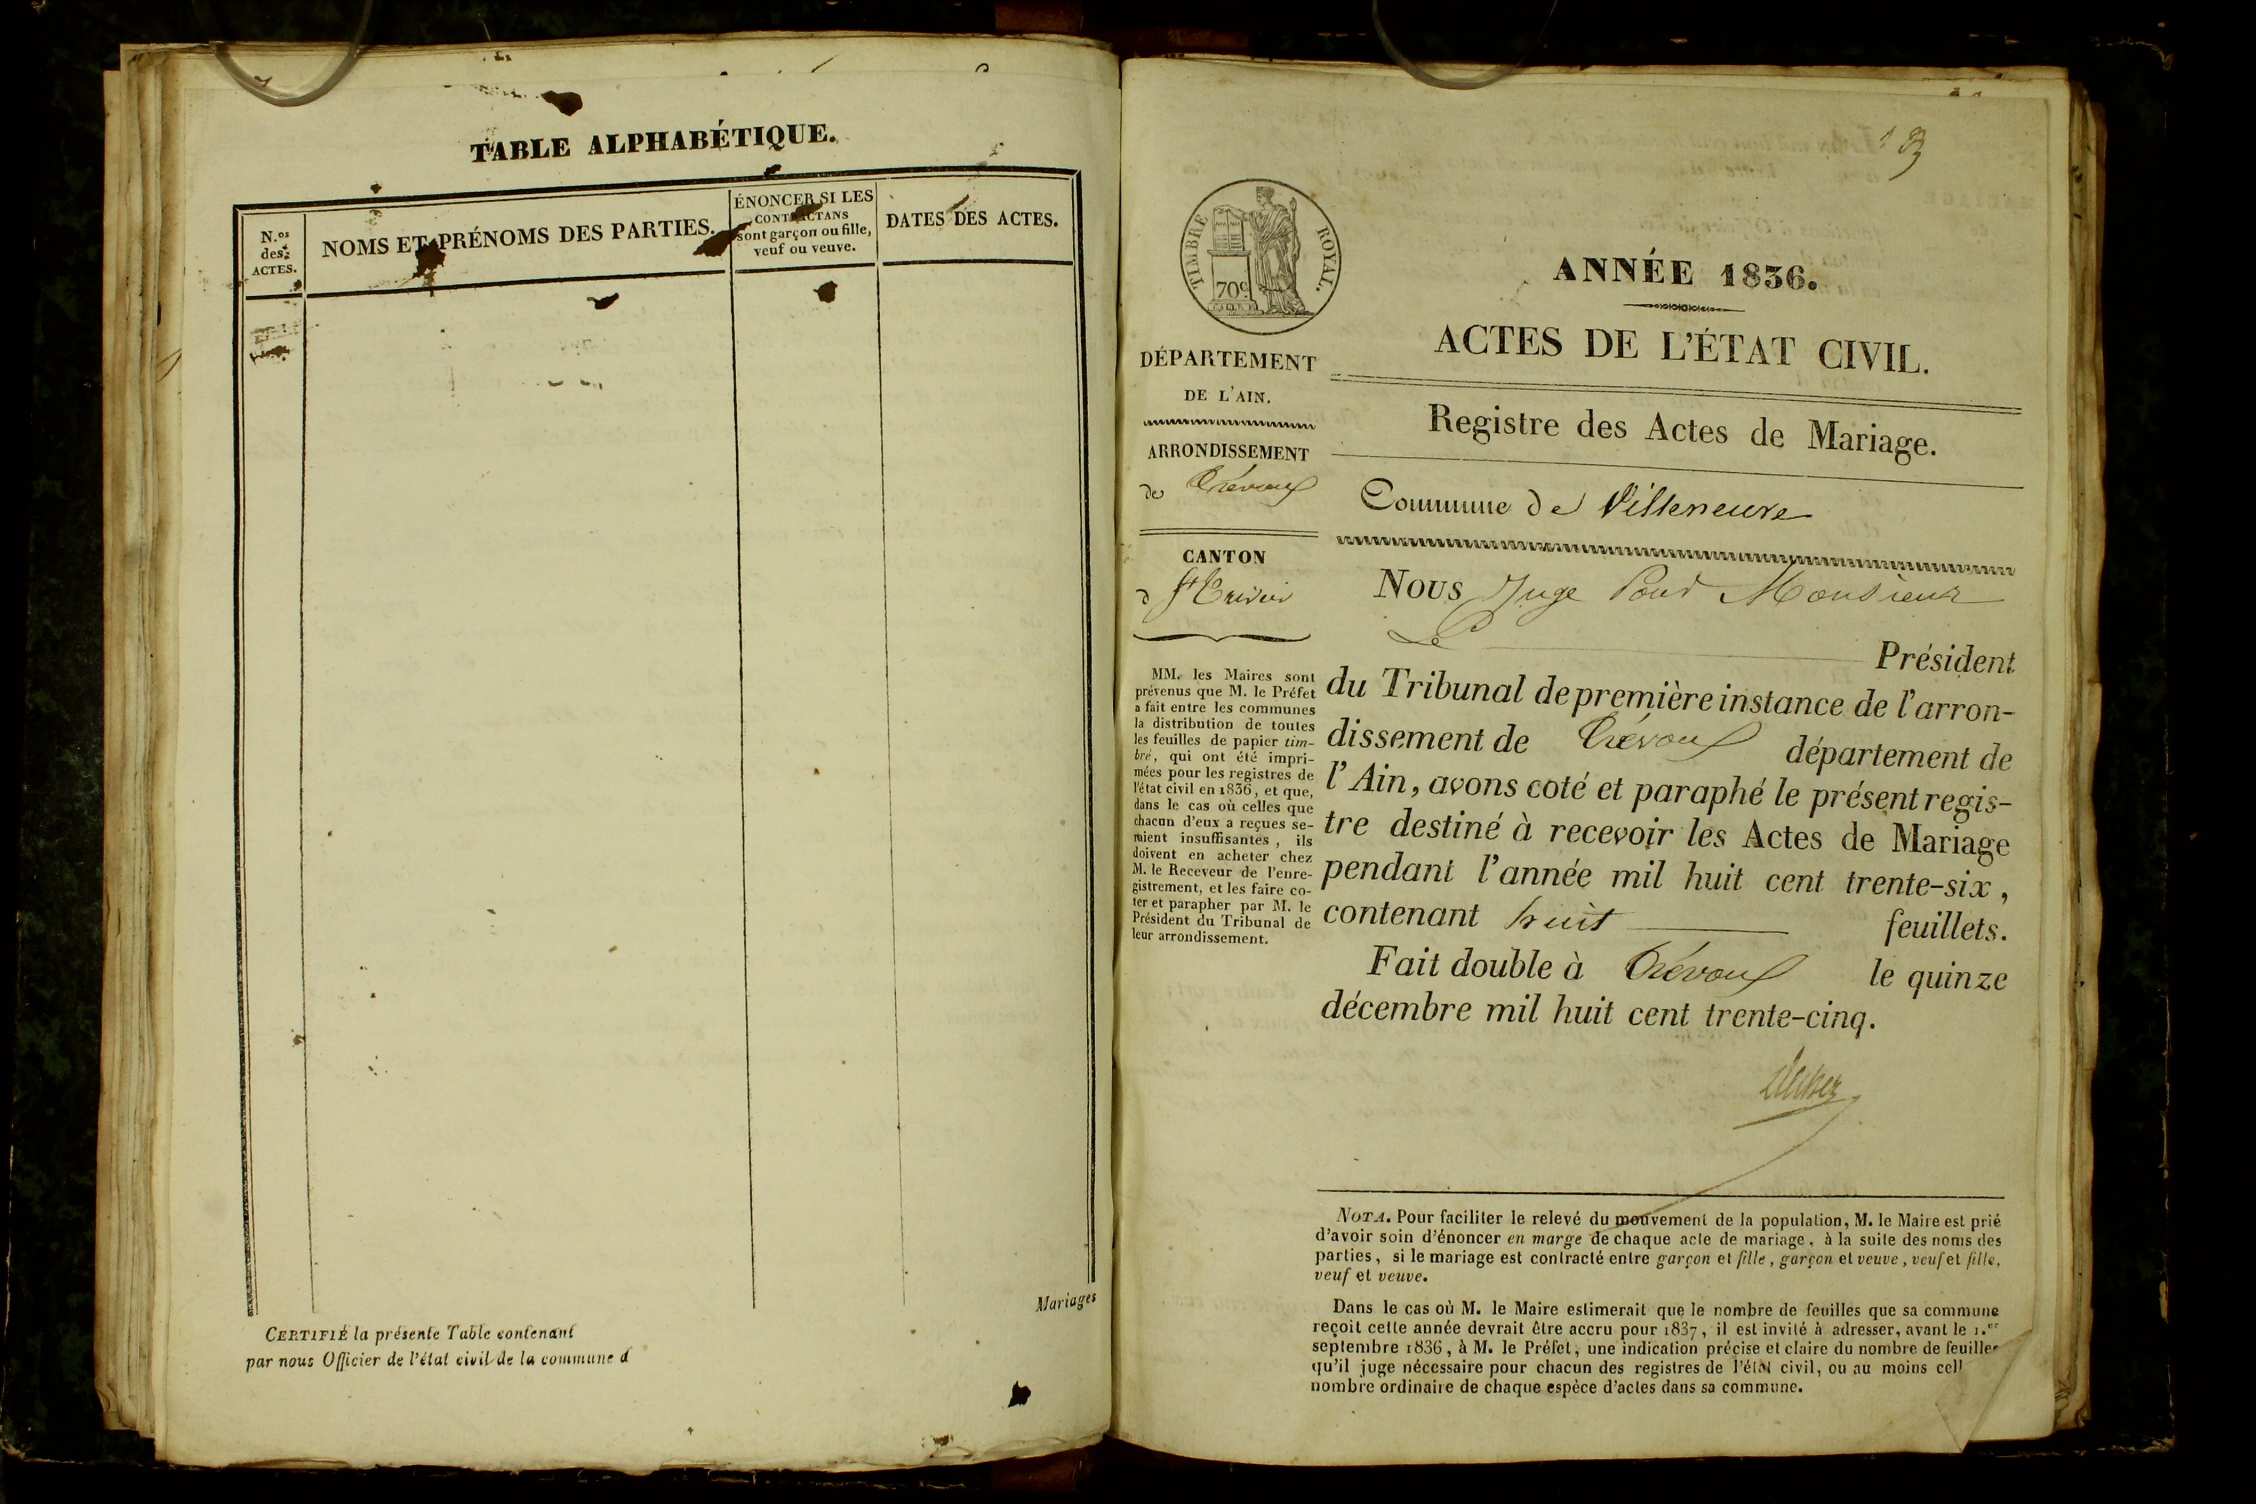 TABLE ALPHABÉTIQUE.
N.os
des
ACTES.
NOMS ET PRÉNOMS DES PARTIES.
ÉNONCER SI LES
CONTRACTANS
sont garçon ou fille,
veuf ou veuve.
DATES DES ACTES.
Mariages
CERTIFIÉ la présente Table contenant
par nous Officier de l'état civil de la commune d
TIMBRE ROYAL.
70c
DÉPARTEMENT
DE L'AIN.
ARRONDISSEMENT
de Trévoux
CANTON
d St Trivier
MM. les Maires sont
prévenus que M. le Préfet
a fait entre les communes
la distribution de toutes
les feuilles de papier tim-
bré, qui ont été impri-
mées pour les registres de
l'état civil en 1836, et que,
dans le cas où celles que
chacun d'eux a reçues se-
raient insuffisantes, ils
doivent en acheter chez
M. le Receveur de l'enre-
gistrement, et les faire co-
ter et parapher par M. le
Président du Tribunal de
leur arrondissement.
ANNÉE 1836.
ACTES DE L'ÉTAT CIVIL.
Registre des Actes de Mariage.
Commune de Villeneuve
Nous Juge Pour Monsieur
Le Président
du Tribunal de première instance de l'arron-
dissement de Trévoux département de
l'Ain, avons coté et paraphé le présent regis-
tre destiné à recevoir les Actes de Mariage
pendant l'année mil huit cent trente-six,
contenant huit feuillets.
Fait double à Trévoux le quinze
décembre mil huit cent trente-cinq.
NOTA. Pour faciliter le relevé du mouvement de la population, M. le Maire est prié
d'avoir soin d'énoncer en marge de chaque acte de mariage, à la suite des noms des
parties, si le mariage est contracté entre garçon et fille, garçon et veuve, veuf et fille,
veuf et veuve.
Dans le cas où M. le Maire estimerait que le nombre de feuilles que sa commune
reçoit cette année devrait être accru pour 1837, il est invité à adresser, avant le 1.er
septembre 1836, à M. le Préfet, une indication précise et claire du nombre de feuilles
qu'il juge nécessaire pour chacun des registres de l'état civil, ou au moins cell
nombre ordinaire de chaque espèce d'actes dans sa commune.